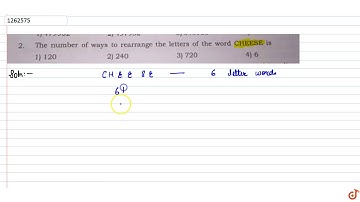 1262575
2. The number of ways to rearrange the letters of the word CHEESE is
1) 120 2) 240 3) 720 4) 6
Soln:- C H E E S E — 6 letter words
6